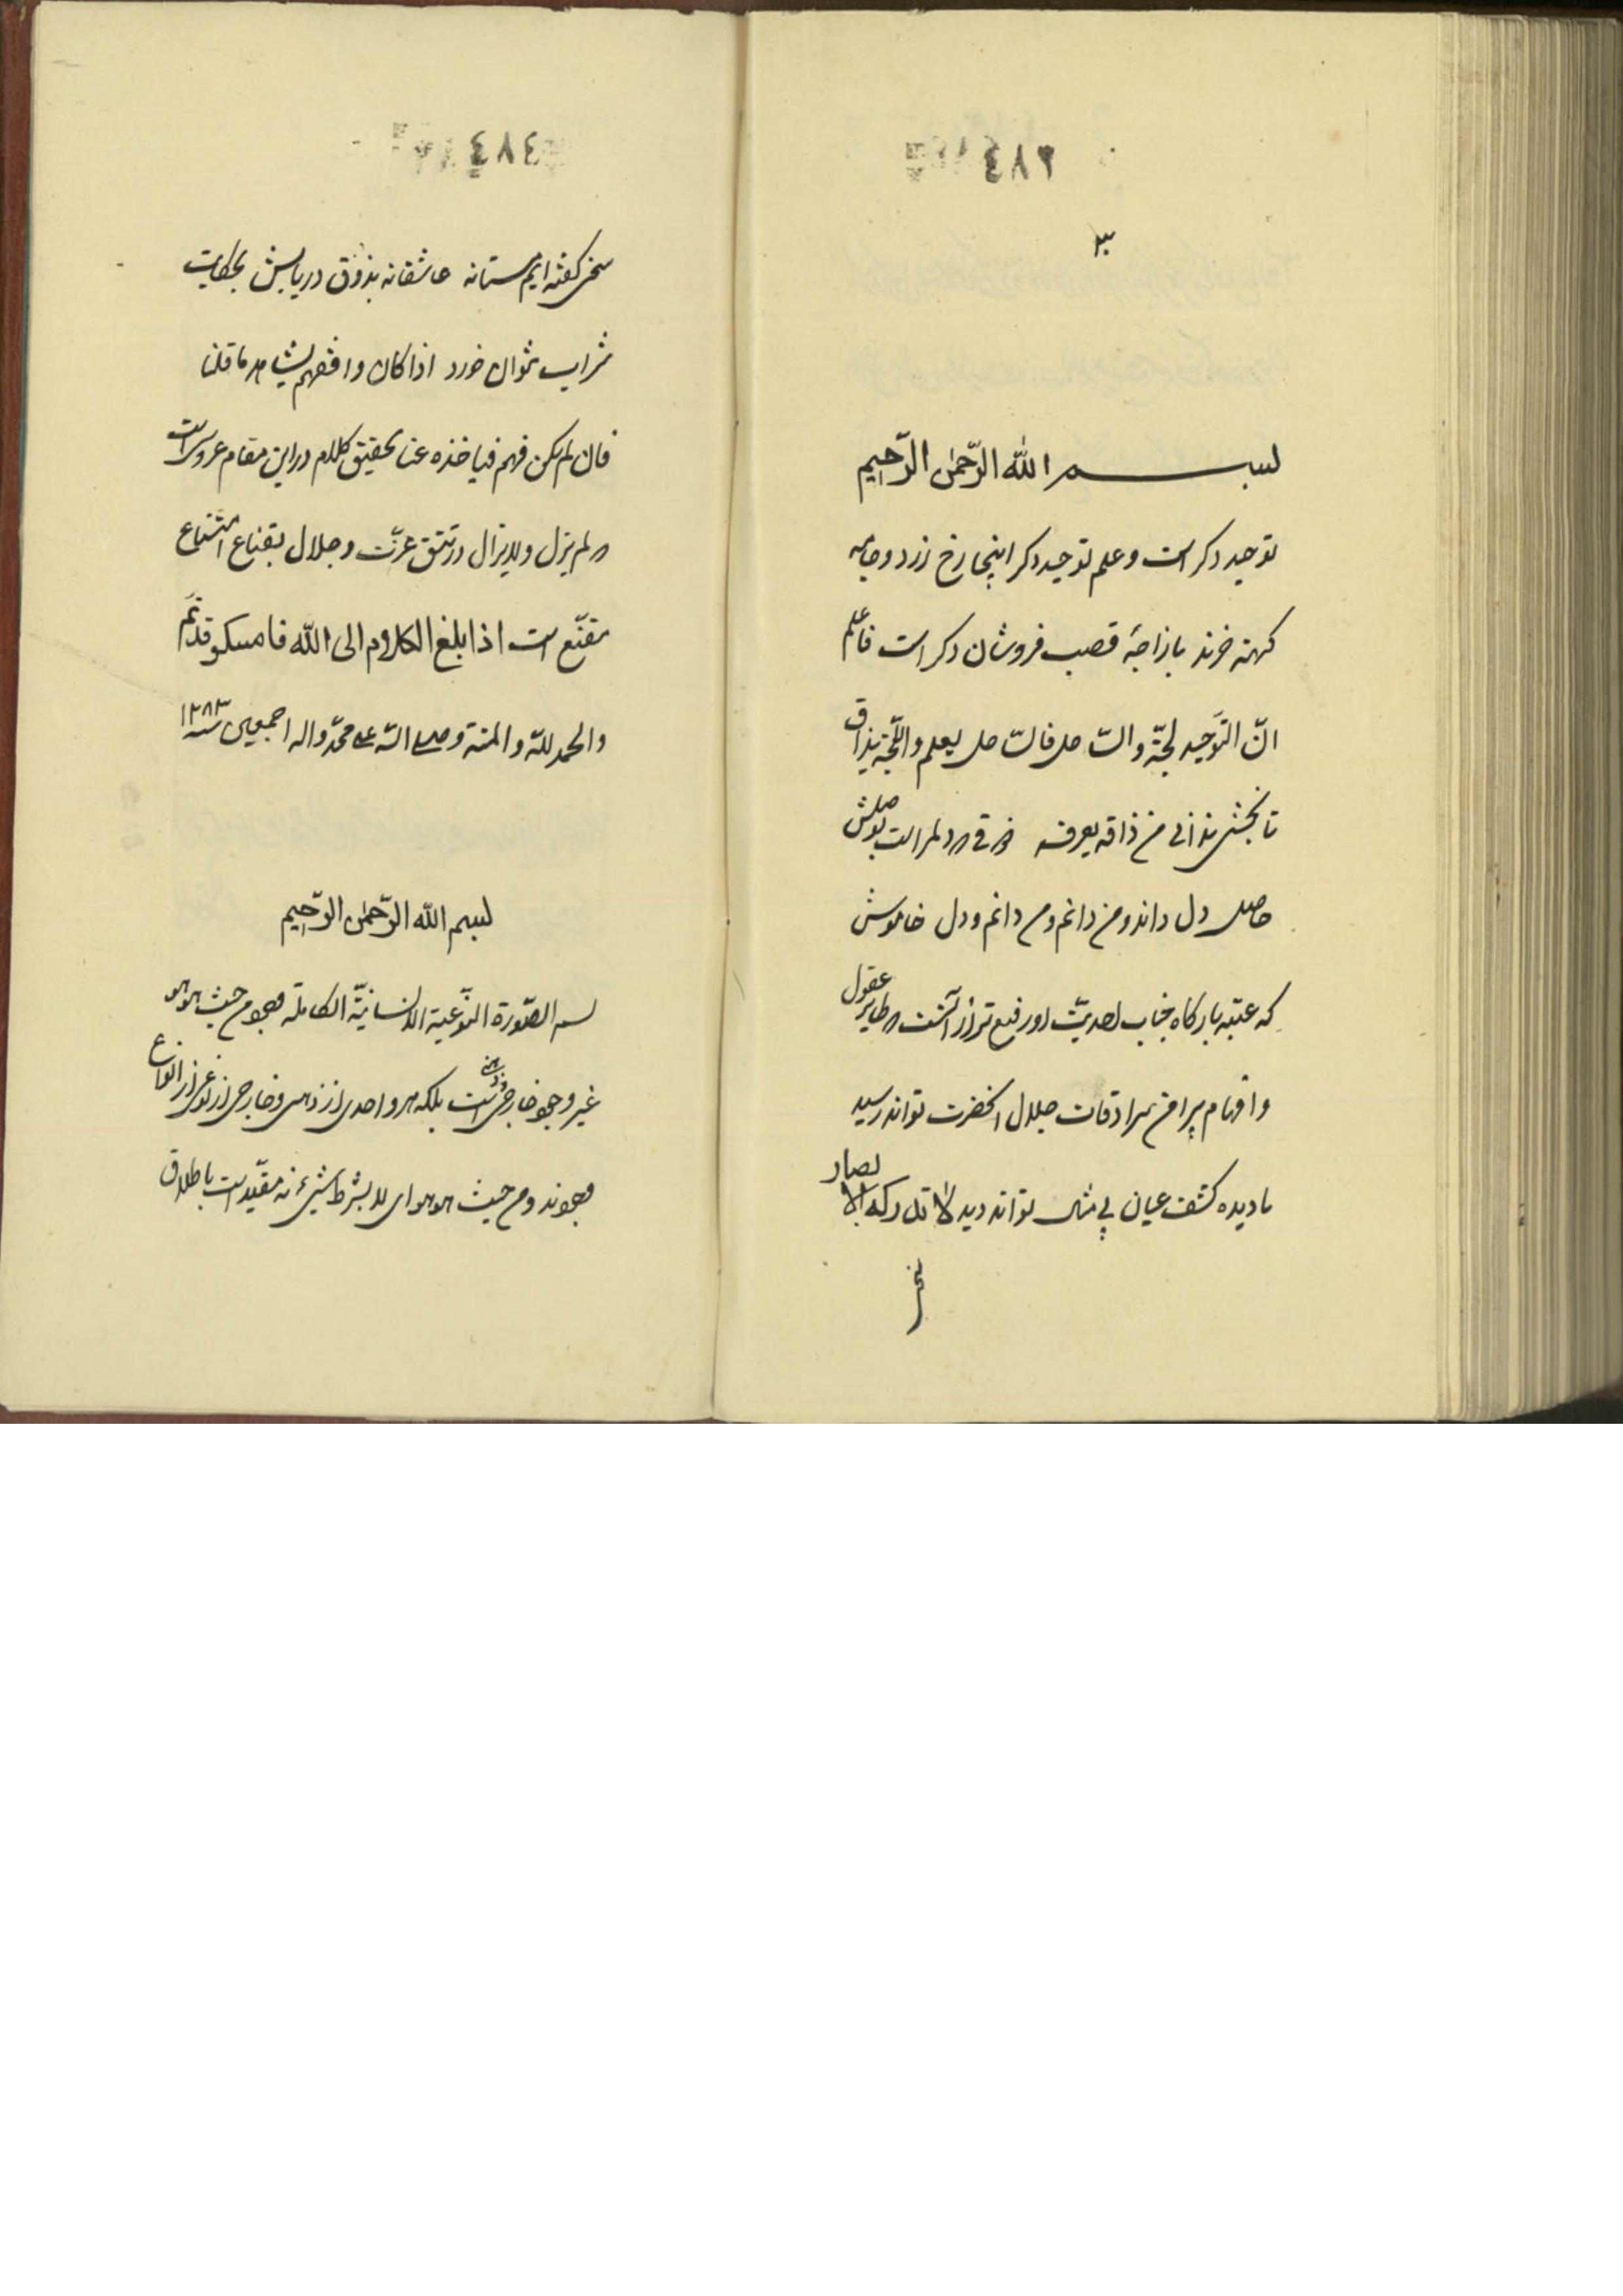 ٢٨٤
٣
بسم الله الرّحمن الرّحیم
توحید دکر است و علم توحید دکر اینجا رخ زرد و جامه
کهنه خرند بازاچهٔ قصب فروشان دکر است فاعلم
انّ التوحید لجّة و الساحل فالساحل یعلم و اللّجّة یذاق
تا نچشی ندانی من ذاقه یعرفه ذوقی که دلم راست بوصلش
حاصل دل داند و من دانم و من دانم و دل خاموش
که عتبه بارکاه جناب احدیّت او رفیع‌تر از آنست که طایر عقول
و افهام پیرامن سرادقات جلال انحضرت تواند رسید
یا دیده کشف عیان بی مثال تواند دید لا تدرکه الابصار
سخن
٤٨٤
سخن کفته‌ایم مستانه عاشقانه بذوق دریابش بحکایت
شراب نتوان خورد اذا کان وافقهم یشاهد ما قلنا
فان لم یکن فهم فیاخذه عنا تحقیق کلام در این مقام عروس است
که لم یزل و لایزال در تتق عزّت و جلال بقناع امتناع
مقنّع است اذا بلغ الکلام الی الله فامسکو قد تم
و الحمد للّه و المنة و صلی الله علی محمّد و اله اجمعین سنه ١٢٨٣
بسم الله الرّحمن الرّحیم
بسم الصّورة النّوعیة الانسانیّة الکاملة وجود من حیث هو هو
غیر وجود خارجی و ذهنی است بلکه هر واحدی از ذهنی و خارجی از نوعی از انواع
وجودند و من حیث هو هو ای لا بشرط شیء نه مقیّد است باطلاق